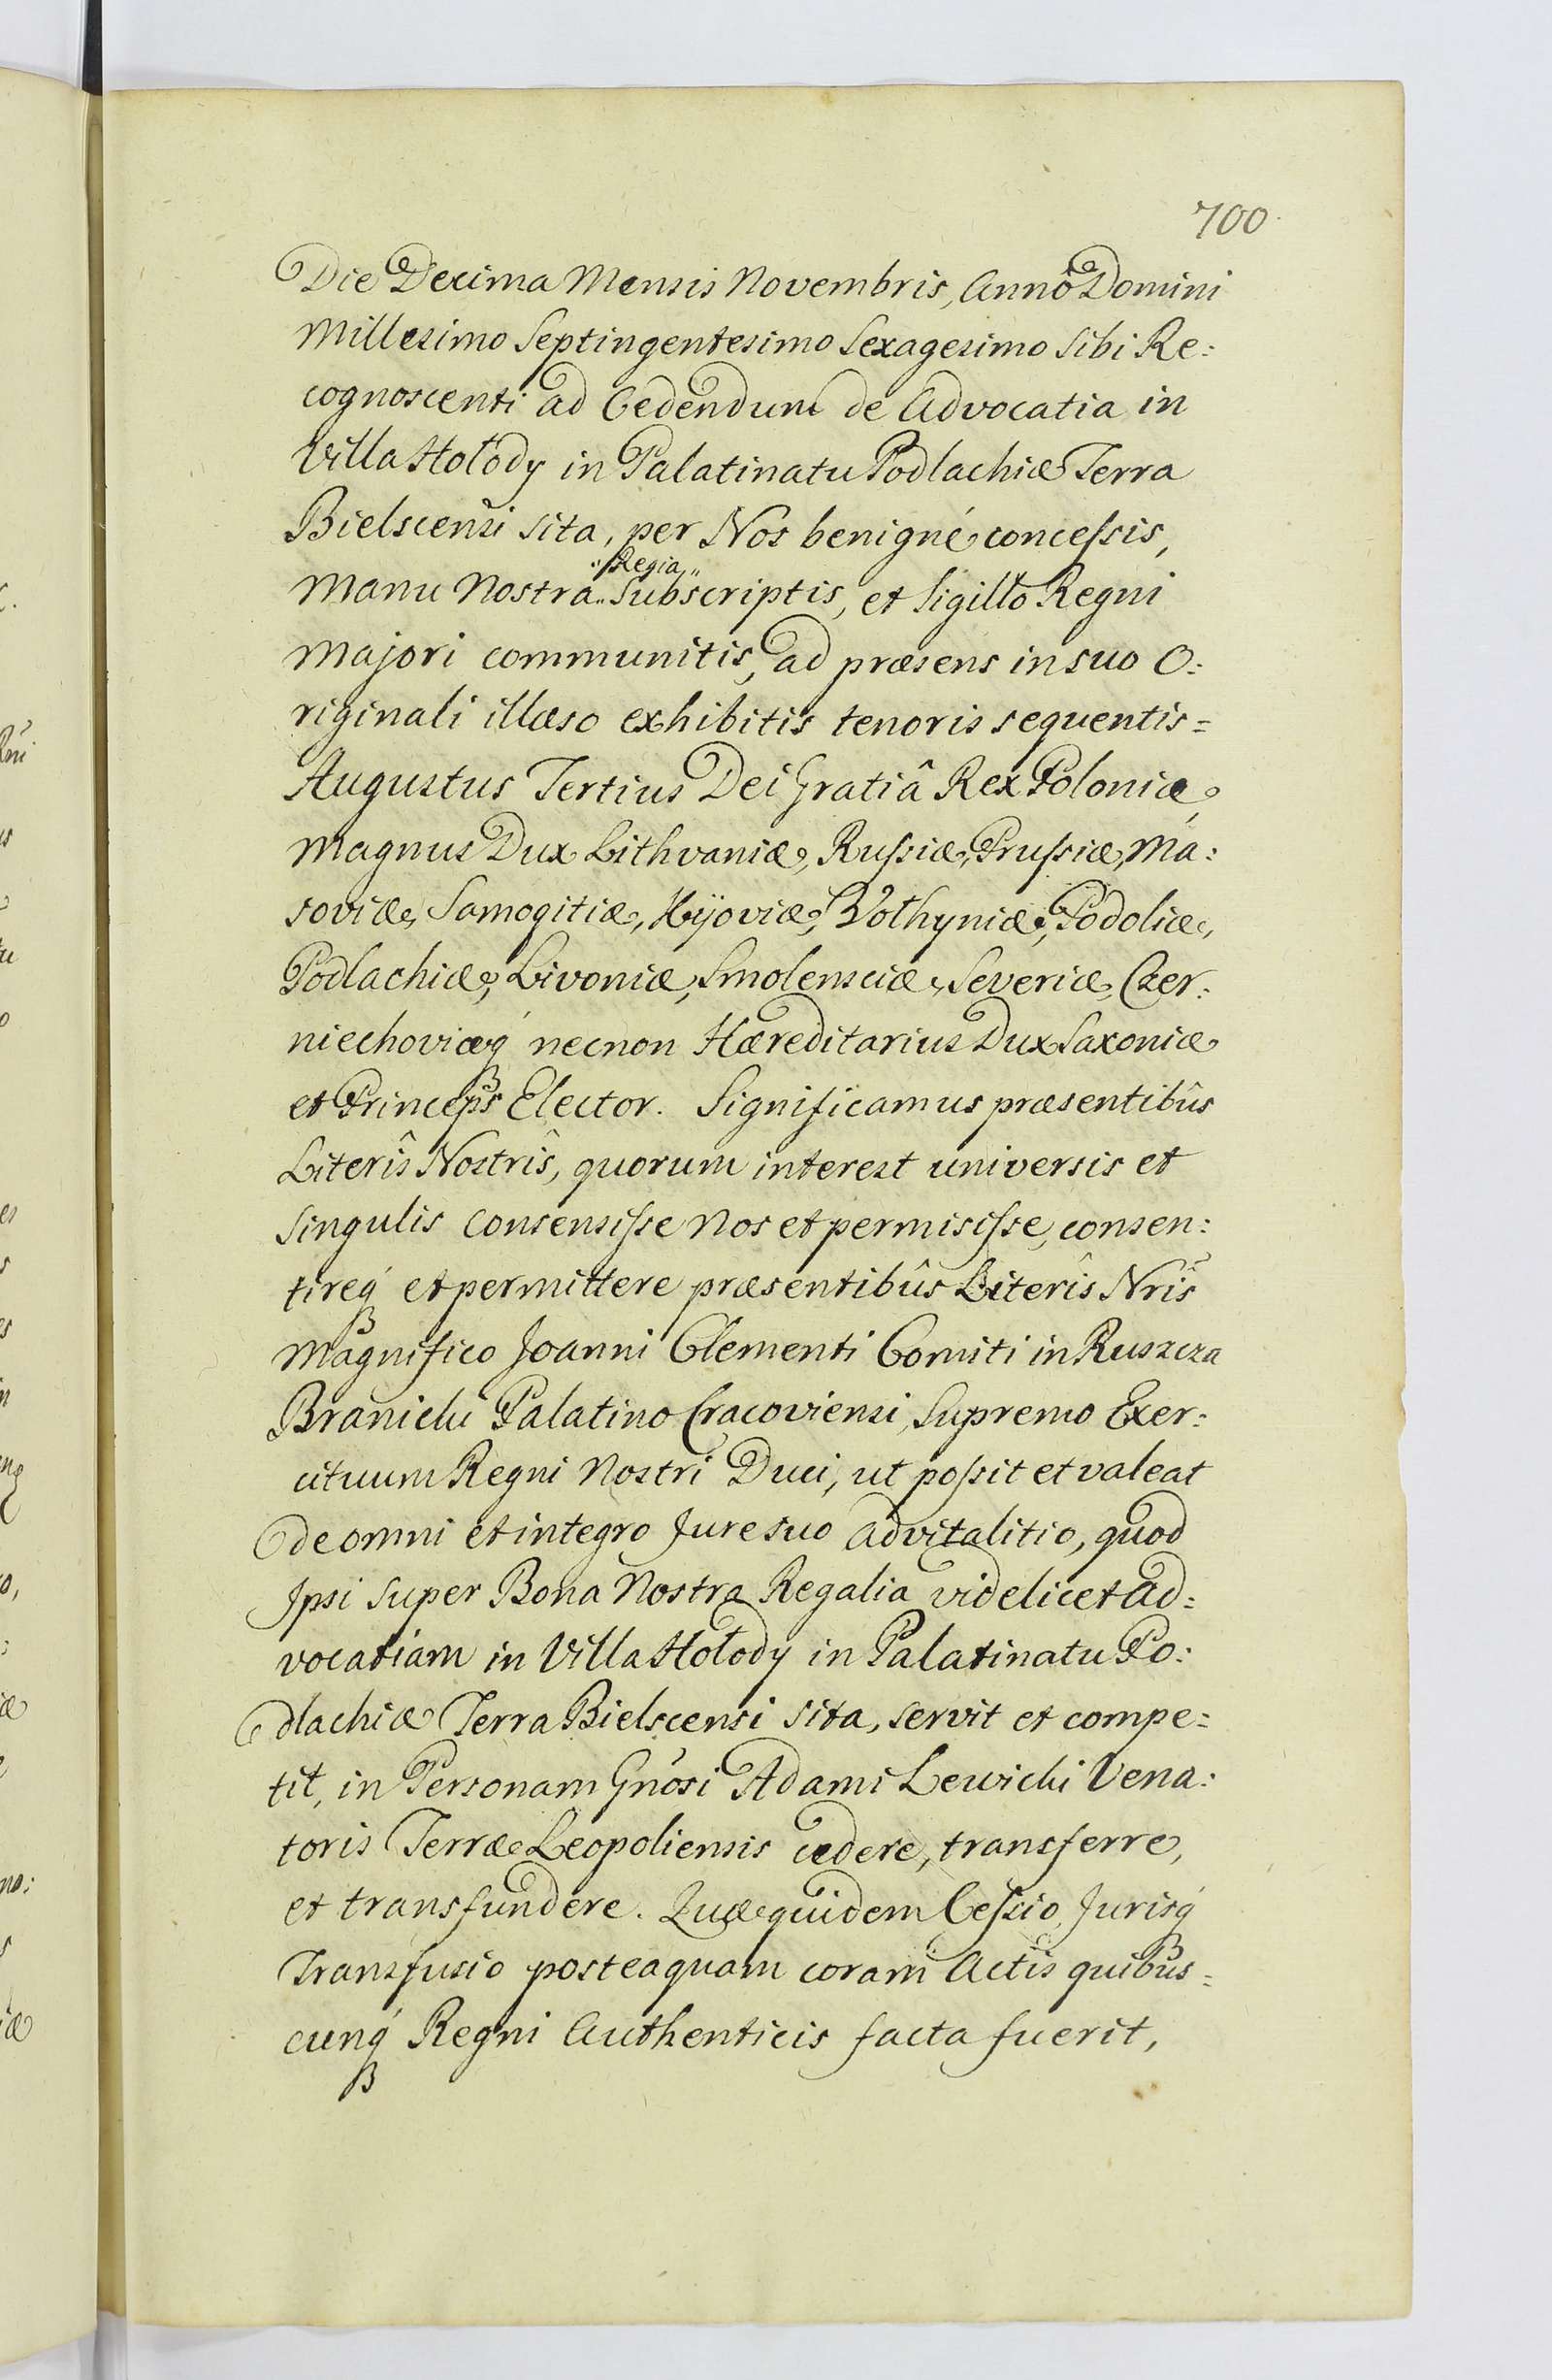 700
Die Decima Mensis Novembris, Annô Domini
Millesimo Septingentesimo Sexagesimo Sibi Re:
cognoscenti ad Cedendum de Advocatia in
Villa Hołody in Palatinatu Podlachiæ Terra
Bielscensi sita, per Nos benigné concessis,
Regia
Manu Nostra Subscriptis, et Sigillô Regni
Majori communitis, ad præsens in suo O:
riginali illæso exhibitis tenoris sequentis=
Augustus Tertius Dei Gratiâ Rex Poloniæ,
Magnus Dux Lithvaniæ, Russiæ, Prussiæ, Ma:
soviæ, Samogitiæ, Kijoviæ, Vołhyniæ, Podoliæ,
Podlachiæ, Livoniæ, Smolensciæ, Severiæ, Czer:
niechoviæq́ necnon Hæreditarius Dux Saxoniæ
et Princeps Elector. Significamus præsentibûs
Literîs Nostrîs, quorum interest universis et
Singulis Consensisse Nos et permisisse, consen:
tireq́ et permittere præsentibûs Literîs Nrîs
Magnifico Joanni Clementi Comiti in Ruszcza
Branicki Palatino Cracoviensi, Supremo Exer:
cituum Regni Nostri Duci, ut possit et valeat
de omni et integro Jure suo advitalitio, quod
Ipsi Super Bona Nostra Regalia videlicet Ad:
vocatiam in Villa Hołody in Palatinatu Po:
dlachiæ Terra Bielscensi Sita, servit et compe:
tit, in Personam Gnosi Adami Lewicki Vena:
toris Terræ Leopoliensis cedere, transferre,
et transfundere. Quæ quidem Cessio, Jurisq́
Transfusio posteaquam coram Actis quibus=
cunq́ Regni Authenticis facta fuerit,